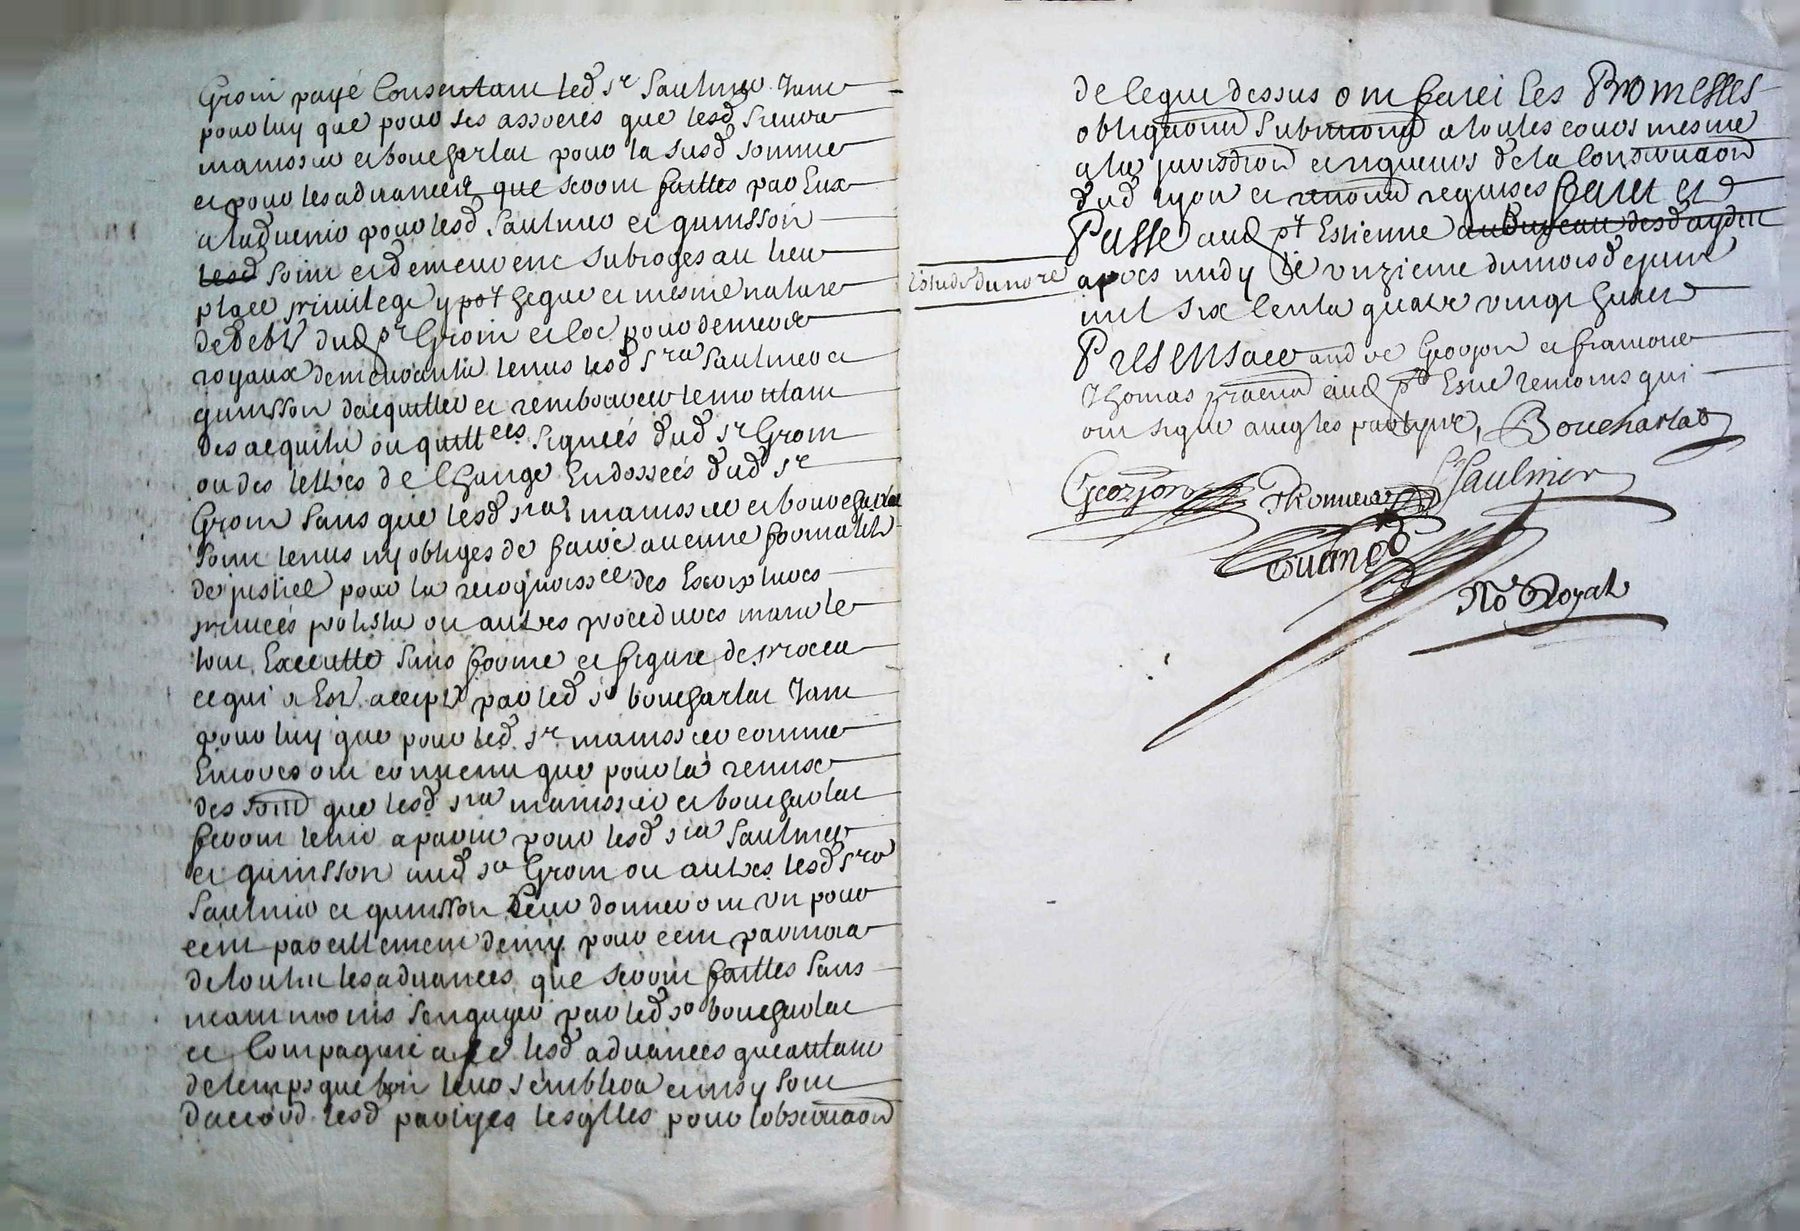 Groin payé Consentant led sr Saulnier Tant
pour luy que pour ses associés que lesd sieurs
manissier et boucharlat pour la susd somme
et pour les advances que seront faittes par Eux
a ladvenir pour lesd Saulnier et quinsson
lesd soint et demeurent subrogés au lieu
place privilege ypotheque et mesme nature
de debte dud sr Groin et loc pour demeurer
royaux demeurants tenus lesd srs Saulnier et
quinsson dacquitter et rembourcer le montant
des acquits ou quittces signées dud sr Groin
ou des lettres de Change Endossées dud sr
Groin sans que lesd srs manissier et boucharlat
soint tenus ny obligés de faire aucune formalité
de justice pour la recognoissce des Escriptures
privées polisse ou autres procedures mais le
tout Executté sans forme et figure de procès
ce qui a Esté accepté par led sr boucharlat Tant
pour luy que pour led sr manissier comme
Encores ont convenu que pour la remise
des somd que lesd srs manissier et boucharlat
feront tenir a pour lesd srs Saulnier
et quinsson aud sr Groin ou autres lesd srs
Saulnier et quinsson leur donneront un pour
cent pareillement demy pour cent par mois
de touttes les advances que seront faittes sans
neantmoins sengager par led sr boucharlat
et Compagnie a lesd advances que autant
de temps que bon leur semblera ainsy sont
daccord lesd partyes lesqlles pour lobservaon
de ce que dessus ont faict les Promesses
obligaons submissions a toutes cours mesme
a la jurisdion et rigueurs de la Conservaon
dud lyon et renond requises faict et
Passé aud pt Estienne au Bureau desd aydes
Estude du nore
apres midy le unzieme du mois de juin
mil six Cents quatre vingt huict
Presensace andre Georjon et francois
Thomas praticien aud pt Esne temoins qui
ont signé avec les partyes, Boucharlat
Georjon Thomas Saulnier
No Royal